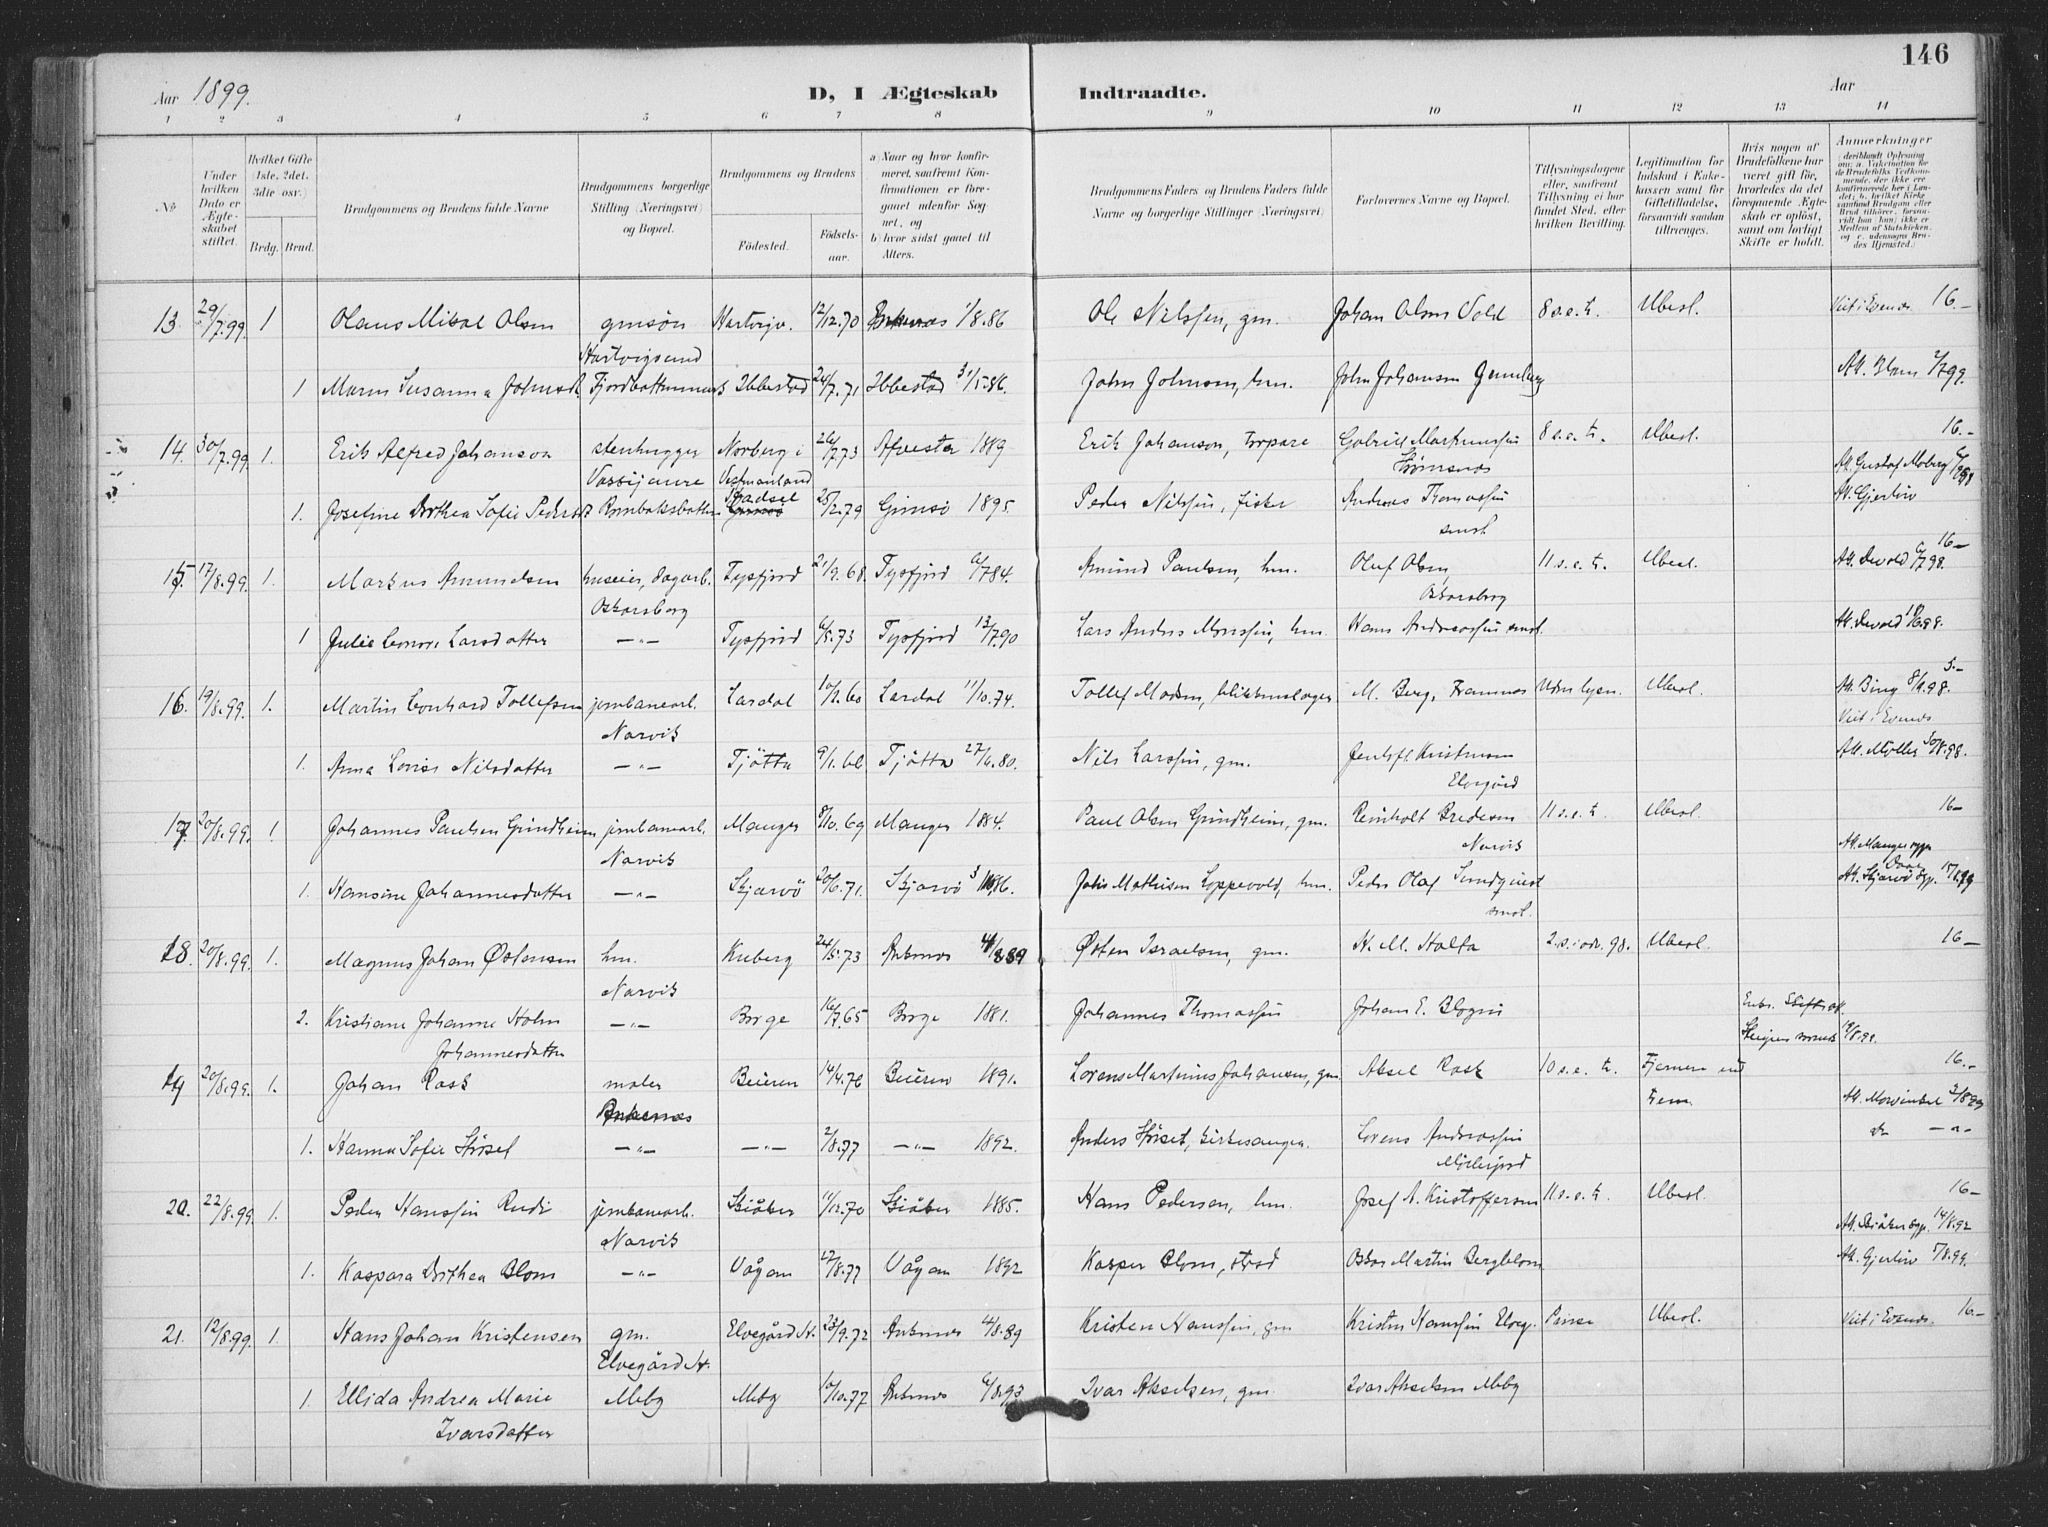 146
Aar 1899.
D, I Ægteskab Indtraadte.
Aar
1 2 3 4 5 6 7 8 9 10 11 12 13 14
No.
Under hvilken Dato er Ægteskabet stiftet.
Hvilket Gifte (1ste, 2det, 3die osv.)
Brdg. Brud.
Brudgommens og Brudens fulde Navne
Brudgommens borgerlige Stilling (Næringsvei) og Bopæl.
Brudgommens og Brudens
Fødested. Fødselsaar.
a) Naar og hvor konfirmeret, saafremt Konfirmationen er foregaaet udenfor Sognet, og
b) hvor sidst gaaet til Alters.
Brudgommens Faders og Brudens Faders fulde Navne og borgerlige Stillinger (Næringsvei)
Forlovernes Navne og Bopæl.
Tillysningsdagene eller, saafremt Tillysning ei har fundet Sted, efter hvilken Bevilling.
Legitimation for Indskud i Enkekassen samt for Giftetilladelse, forsaavidt saadan tiltrænges.
Hvis nogen af Brudefolkene har været gift før, hvorledes da det foregaaende Ægteskab er opløst, samt om lovligt Skifte er holdt.
Anmerkninger
13. 29/7.99. 1 Olaus Mikal Olsen gmsøn Hartvigv. 12/12.70 Ankenæs 1/8.86 Ole Nilssen, gm. Johan Olsen Vold 8 s.e.tr. Ubesl. Viet i Evenes 16-
Hartvigsund
1 Maren Susanna Johnsd. Fjordbotnmark Ibbestad 24/7.71 Ibbestad 31/5.86. John Johnsen, hm. John Johansen
14. 30/7.99. 1. Erik Alfred Johanson stenhugger Norberg i 26/7.73 Afvesta 1889 Erik Johanson, torpare Gabriel Martinussen 8 s.e.tr. Ubesl. 16.-
Vassijaure Vestmanland At. Gustaf Moberg
1. Josefine Dorthea Sofie Pedersd. Rombaksbotten Hadsel 25/2.79 Gimsø 1895. Peder Nilssen, fisker Andreas Thomassen At. Gjerløv
smst.
15. 17/8.99. 1. Markus Amundsen huseier, dagarb. Tysfjord 21/9.68. Tysfjord 6/7.84. Amund Paulsen, hm. Oluf Olsen 11 s.e.tr. Ubesl. At. Devold 6/7.98. 16-
Oskarsborg Oskarsborg
1 Julie Lenore Larsdatter -„- Tysfjord 6/5.73 Tysfjord 13/7.90 Lars Anders Monssen, hm. Hans Andreassen smst. At. Devold
16. 19/8.99. 1. Martin Leonhard Tollefsen jernbanearb. Lardal 10/2.60 Lardal 11/10.74. Tollef Madsen, blikkenslager M. Berg, Framnes Uden lysn. Ubesl. At. Bing 8/1.98. 5.-
Narvik Viet i Evenes
1. Anna Lovise Nilsdatter -„- Tjøtta 9/1.66 Tjøtta 27/6.80. Nils Larssen, gm. Jentoft Kristensen At. Møller 30/8.98.
Elvegård
17. 20/8.99. 1 Johannes Paulsen Grindheim jernbanearb. Manger 8/10.69 Manger 1884. Paul Olsen Grindheim, gm. Reinholt Bredesen 11 s.e.tr. Ubesl. 16-
Narvik Narvik At. Manger sgpr.
1. Hansine Johannesdatter -„- Skjærvø 20/6.71. Skjærvø Johs Mathisen Loppevold, hm. Peder Olaf Sundquist At. Skjærvø Sgp.
smst.
18. 20/8.99. 1. Magnus Johan Østensen hm. Kuberg 24/5.73 Ankenes 4/8.89 Østen Israelsen, gm. H. M. Holta 2. s. i adv. 98. Ubesl. 16-
Narvik
2. Kristiane Johanne Holm -„- Borge 16/7.65 Borge 1881. Johannes Thomassen Johan E. Blogni Enke. Skifteatt.
Johannesdatter Steigens sorensk.
19 20/8.99. 1. Johan Rask maler Beieren 14/4.70 Beieren 1891. Lorens Martinius Johansen, gm. Aksel Rask 10 s.e.tr. Fjernere end 16.-
Ankenæs fem. At. Mowinckel 3/8.99
1. Hanna Sofie Høset -„- -„- 2/8.77 -„- 1892. Anders Høset, kirkesanger Lorens Andreassen do -„-
20. 22/8.99. 1. Peder Hanssen Rudi jernbanearb. Skiåker 11/12.70 Skiåker 1885. Hans Pedersen, hm. Josef A. Kristofferson 11 s.e.tr. Ubesl. 16-
Narvik At. Skiåker sgp. 14/8.92
1. Kaspara Dorthea Blom -„- Vågan 27/8.77 Vågan 1892 Kasper Blom, strad Oskar Martin Bergblom At. Gjerløv 7/8.99.
21. 12/8.99. 1. Hans Johan Kristensen gm. Elvegård Sk. 23/9.72 Ankenes 4/8.89 Kristen Hanssen, gm Kristen Hanssen Elveg. Pinse Ubesl. Viet i Evenes. 16.-
Elvegård Sk.
1. Ellida Andrea Marie Meby Meby 10/10.77 Ankenes 6/8.93 Ivar Akselsen, gm. Ivar Akselsen Meby
Ivarsdatter